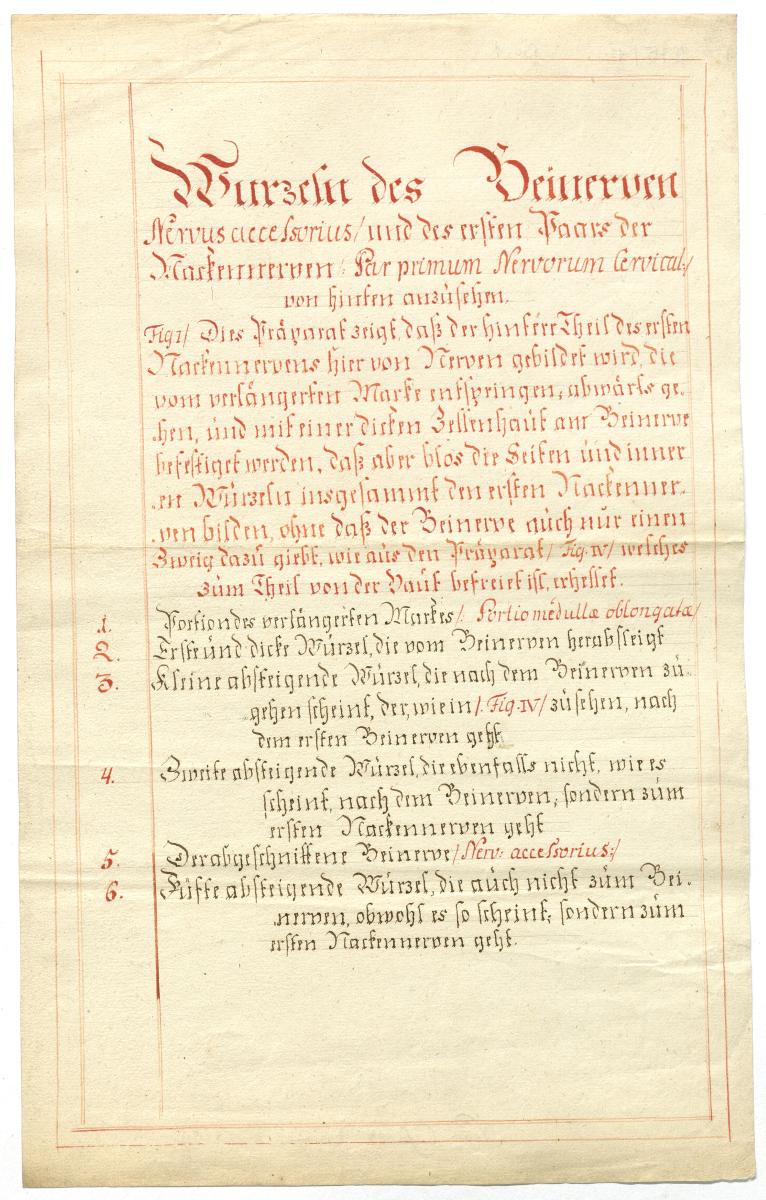 Wurzeln des Beinerven
Nervus accessorius/ und des ersten Paars der
Nackennerven /: Par primum Nervorum Cervical:/
von hinten anzusehen.
Fig I/ Dies Präparat zeigt, daß der hintere Theil des ersten
Nackennervens hier von Nerven gebildet wird, die
vom verlängerten Marke entspringen, abwärts ge-
hen, und mit einer dicken Zellenhaut am Beinerve
befestiget werden, daß aber blos die Seiten und inner
en Würzeln insgesammt den ersten Nackenner-
ven bilden, ohne daß der Beinerve auch nur einen
Zweig dazu giebt, wie aus den Präparat / Fig. IV/ welches
zum Theil von der Haut befreiet ist, erhellet.
1. Portion des verlängerten Markes /: Portio medullæ oblongatæ/
2. Erste und dicke Würzel, die vom Beinerven herabsteigt
3. Kleine absteigende Würzel, die nach dem Beinerven zu
gehen scheint, der, wie in /: Fig. IV/ zusehen, nach
dem ersten Beinerven geht
4. Zweite absteigende Würzel, die ebenfalls nicht, wie es
scheint, nach dem Beinerven, sondern zum
ersten Nackennerven geht
5. Der abgeschnittene Beinerve /Nerv: accessorius:/
6. Füfte absteigende Würzel, die auch nicht zum Bei-
nerven, obwohl es so scheint, sondern zum
ersten Nackennerven geht.